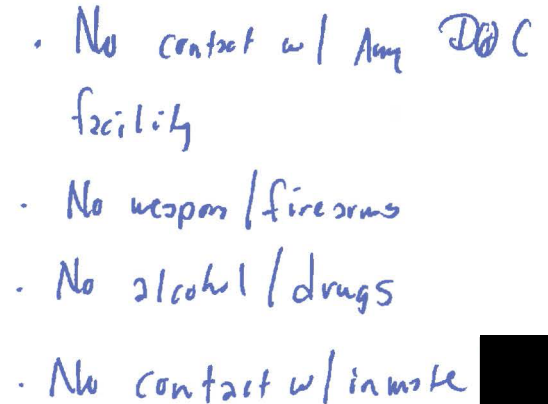 . No contact w/ Any DOC
facility
. No weapon/firearms
. No alcohol/drugs
. No contact w/ inmate